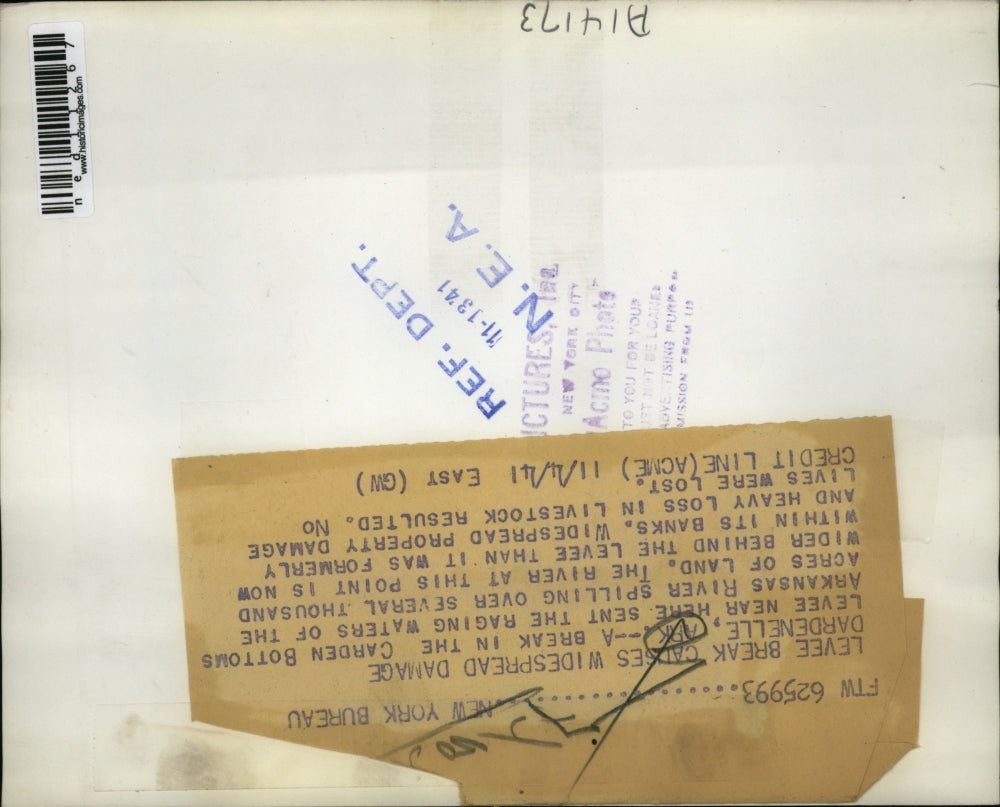 A14173
ned11267
www.historicimages.com
REF. DEPT.
11-13'41
N. E. A.
ICTURES, INC.
NEW YORK CITY
Acme Photo
TO YOU FOR YOUR
NOT BE LOANED
ADVERTISING PURPOS
MISSION FROM US
FTW 625993....................NEW YORK BUREAU
LEVEE BREAK CAUSES WIDESPREAD DAMAGE
DARDENELLE, ARK--A BREAK IN THE CARDEN BOTTOMS
LEVEE NEAR HERE SENT THE RAGING WATERS OF THE
ARKANSAS RIVER SPILLING OVER SEVERAL THOUSAND
ACRES OF LAND. THE RIVER AT THIS POINT IS NOW
WIDER BEHIND THE LEVEE THAN IT WAS FORMERLY
WITHIN ITS BANKS. WIDESPREAD PROPERTY DAMAGE
AND HEAVY LOSS IN LIVESTOCK RESULTED. NO
LIVES WERE LOST.
CREDIT LINE(ACME) 11/4/41 EAST (GW)